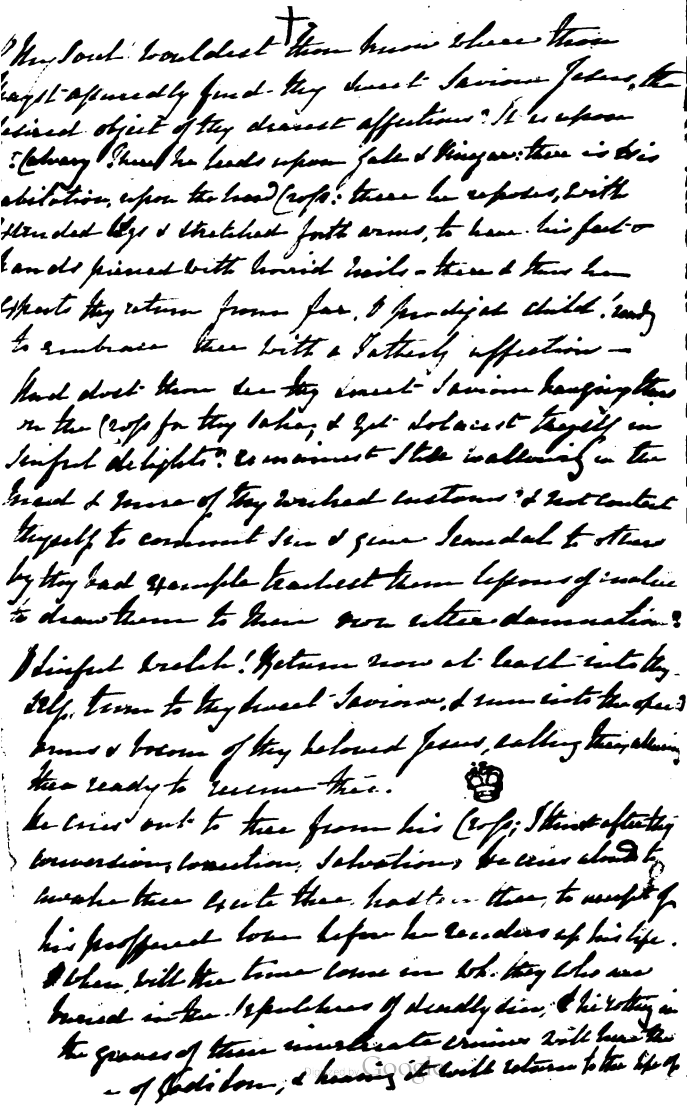 My Soul wouldest thou know where thou
mayst assuredly find thy sweet Saviour Jesus, the
desired object of thy dearest affections? It is upon
Calvary! There he feeds upon Gale & Vinegar: there is his
abitation, upon the hard Crosse: there he reposes, with
extended legs & stretched forth arms, to have his feet &
hands pierced with horrid Nails - there & thus he
expects thy return from far, O prodigal child! ready
to embrace thee with a Fatherly affection —
And dost thou see thy sweet Saviour hanging thus
on the Crosse for thy sake, & yet solacest thyself in
sinful delights? remainest still wallowing in the
mud & mire of thy wicked customs? & not content
thyself to commit sin & give Scandal to others
by thy bad example teachest them lessons of malice
to draw them to their own utter damnation?
O sinful wretch! Return now at least into thy
self, turn to thy sweet Saviour, & run into the open
arms & bosom of thy beloved Jesus, calling thee,
thee ready to receive thee.
He cries out to thee from his Crosse; I thirst after thy
conversion, correction, Salvation, he cries aloud to
awake thee excite thee hasten thee, to accept of
his proffered love before he renders up his life.
O when will the time come in wh. they who are
buried in the Sepulchres of deadly sin, & lie rotting in
the graves of their inveterate crimes will hear the
of God's Son, & hearing it will return to the life of
Digitized by Google